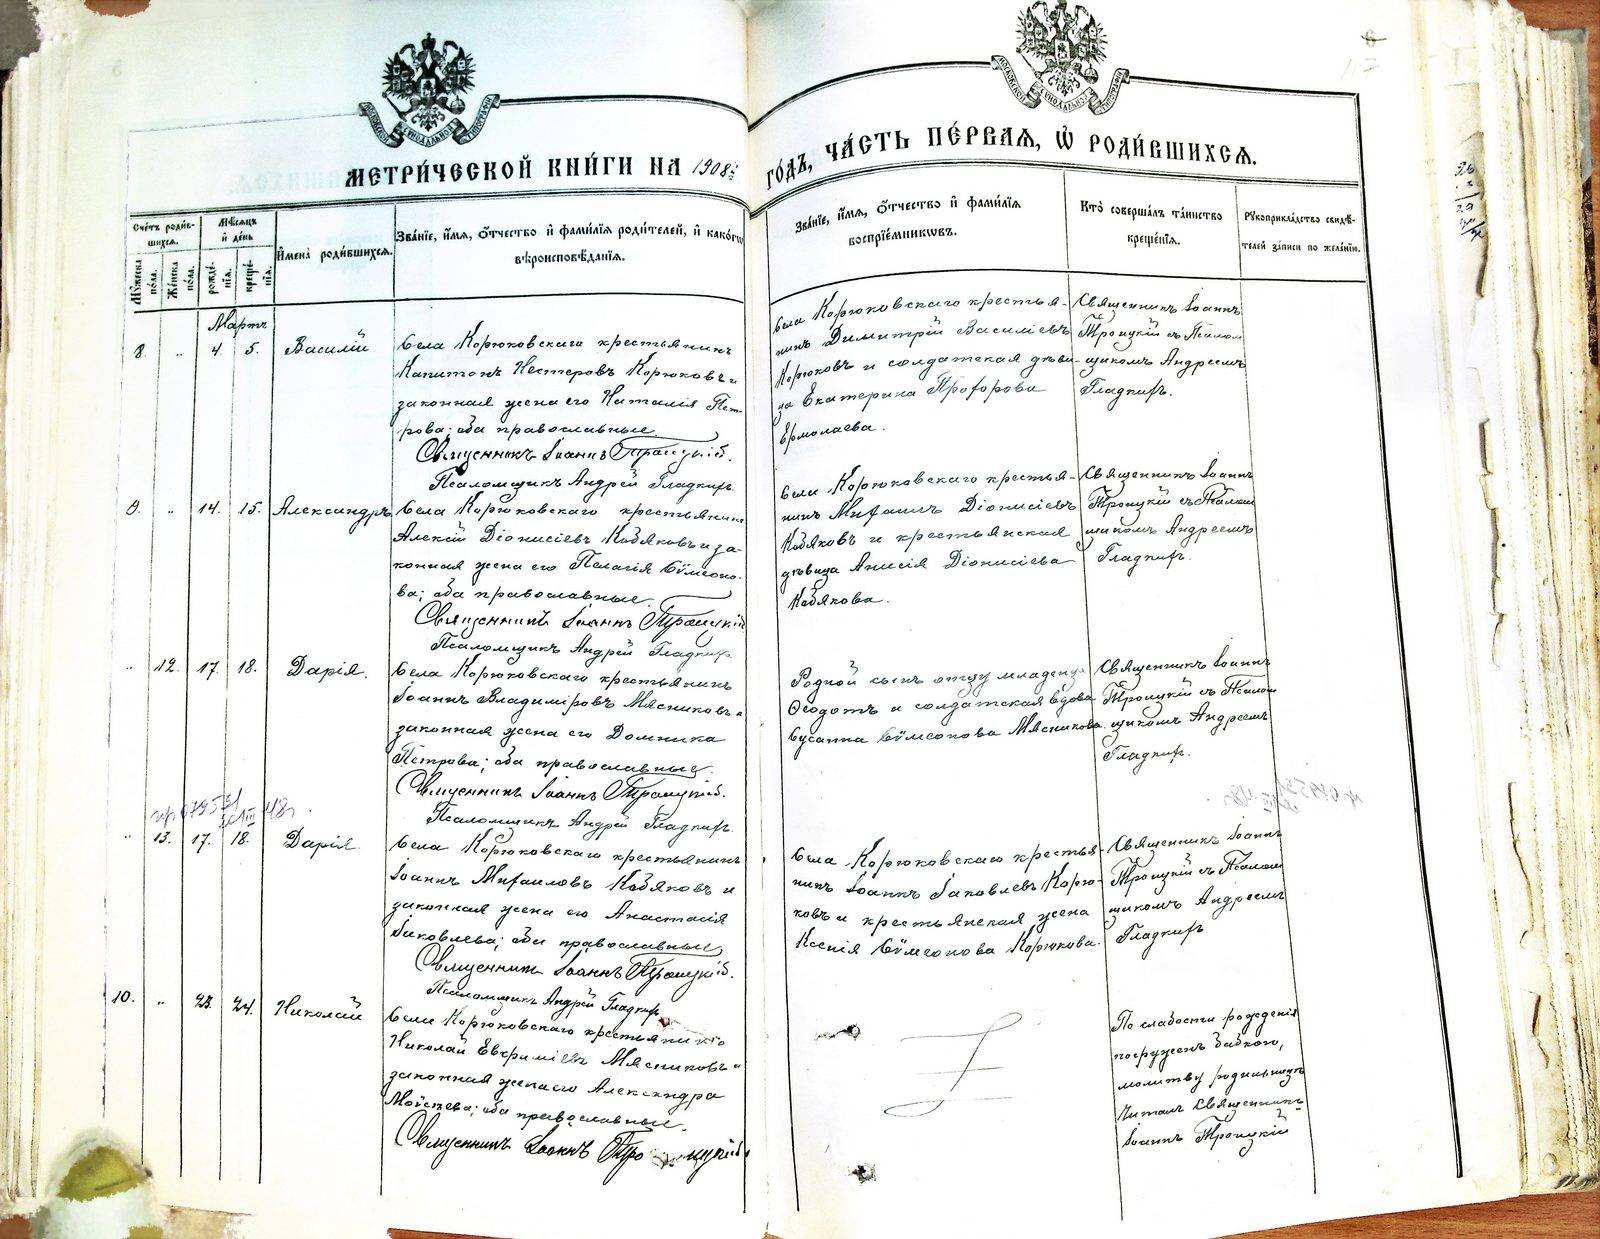 МЕТРИ́ЧЕСКОЙ КНИ́ГИ НА 1908й
ГО́ДЪ, ЧА́СТЬ ПЕ́РВАЯ, Ѡ РОДИ́ВШИХСЯ.
Сче́тъ роди́вшихся.
Му́жеска по́ла.
Же́нска по́ла.
Мѣ́сяцъ и҆ де́нь
рожде́нїя.
креще́нїя.
И҆мена̀ роди́вшихся.
Зва́нїе, и҆́мя, ѻ҆́тчество и҆ фами́лїя роди́телей, и҆ како́гѡ
вѣроисповѣ́данїя.
Зва́нїе, и҆́мя, ѻ҆́тчество и҆ фами́лїя
воспрїе́мникѡвъ.
Кто̀ соверша́лъ та́инство
креще́нїя.
Рꙋкоприкла́дство свидѣ́-
телей за́писи по жела́нїю.
Мартъ
8. „ 4. 5. Василій
Села Корюковскаго крестьянинъ
Капитонъ Нестеровъ Корюковъ и
законная жена его Наталія Пет-
рова; оба православные.
Священникъ Іоаннъ Троицкій.
Псаломщикъ Андрей Гладкихъ.
Села Корюковскаго крестья-
нинъ Димитрій Василіевъ
Корюковъ и солдатская дѣви-
ца Екатерина Прохорова
Ермолаева.
Священникъ Іоаннъ
Троицкій съ Псалом
щикомъ Андреемъ
Гладкихъ.
9. „ 14. 15. Александръ
Села Корюковскаго крестьянинъ
Алексій Діонисіевъ Кобяковъ и за-
конная жена его Пелагія Сѵмеоно-
ва; оба православные.
Священникъ Іоаннъ Троицкій
Псаломщикъ Андрей Гладкихъ
Села Корюковскаго крестья-
нинъ Михаилъ Діонисіевъ
Кобяковъ и крестьянская
дѣвица Анисія Діонисіева
Кобякова.
Священникъ Іоаннъ
Троицкій съ Псалом
щикомъ Андреемъ
Гладкихъ.
„ 12. 17. 18. Дарія.
Села Корюковскаго крестьянинъ
Іоаннъ Владиміровъ Мясниковъ и
законная жена его Домника
Петрова; оба православные.
Священникъ Іоаннъ Троицкій.
Псаломщикъ Андрей Гладкихъ.
Родной сынъ отцу младенца
Ѳеодотъ и солдатская вдова
Сусанна Сѵмеонова Мясникова.
Священникъ Іоаннъ
Троицкій съ Псалом
щикомъ Андреемъ
Гладкихъ.
„ 13. 17. 18. Дарія
Села Корюковскаго крестьянинъ
Іоаннъ Михаиловъ Кобяковъ и
законная жена его Анастасія
Іаковлева; оба православные
Священникъ Іоаннъ Троицкій.
Псаломщикъ Андрей Гладкихъ
Села Корюковскаго крестья-
нинъ Іоаннъ Іаковлевъ Корю-
ковъ и крестьянская жена
Ксенія Сѵмеонова Корюкова.
Священникъ Іоаннъ
Троицкій съ Псалом
щикомъ Андреемъ
Гладкихъ
10. „ 23. 24. Николай
Села Корюковскаго крестьянинъ
Николай Евфиміевъ Мясниковъ и
законная жена его Александра
Моѵсеева; оба православные.
Священникъ Іоаннъ Троицкій
По слабости рожденія
погруженъ бабкою,
молитву родильницѣ
читалъ Священникъ
Іоаннъ Троицкій